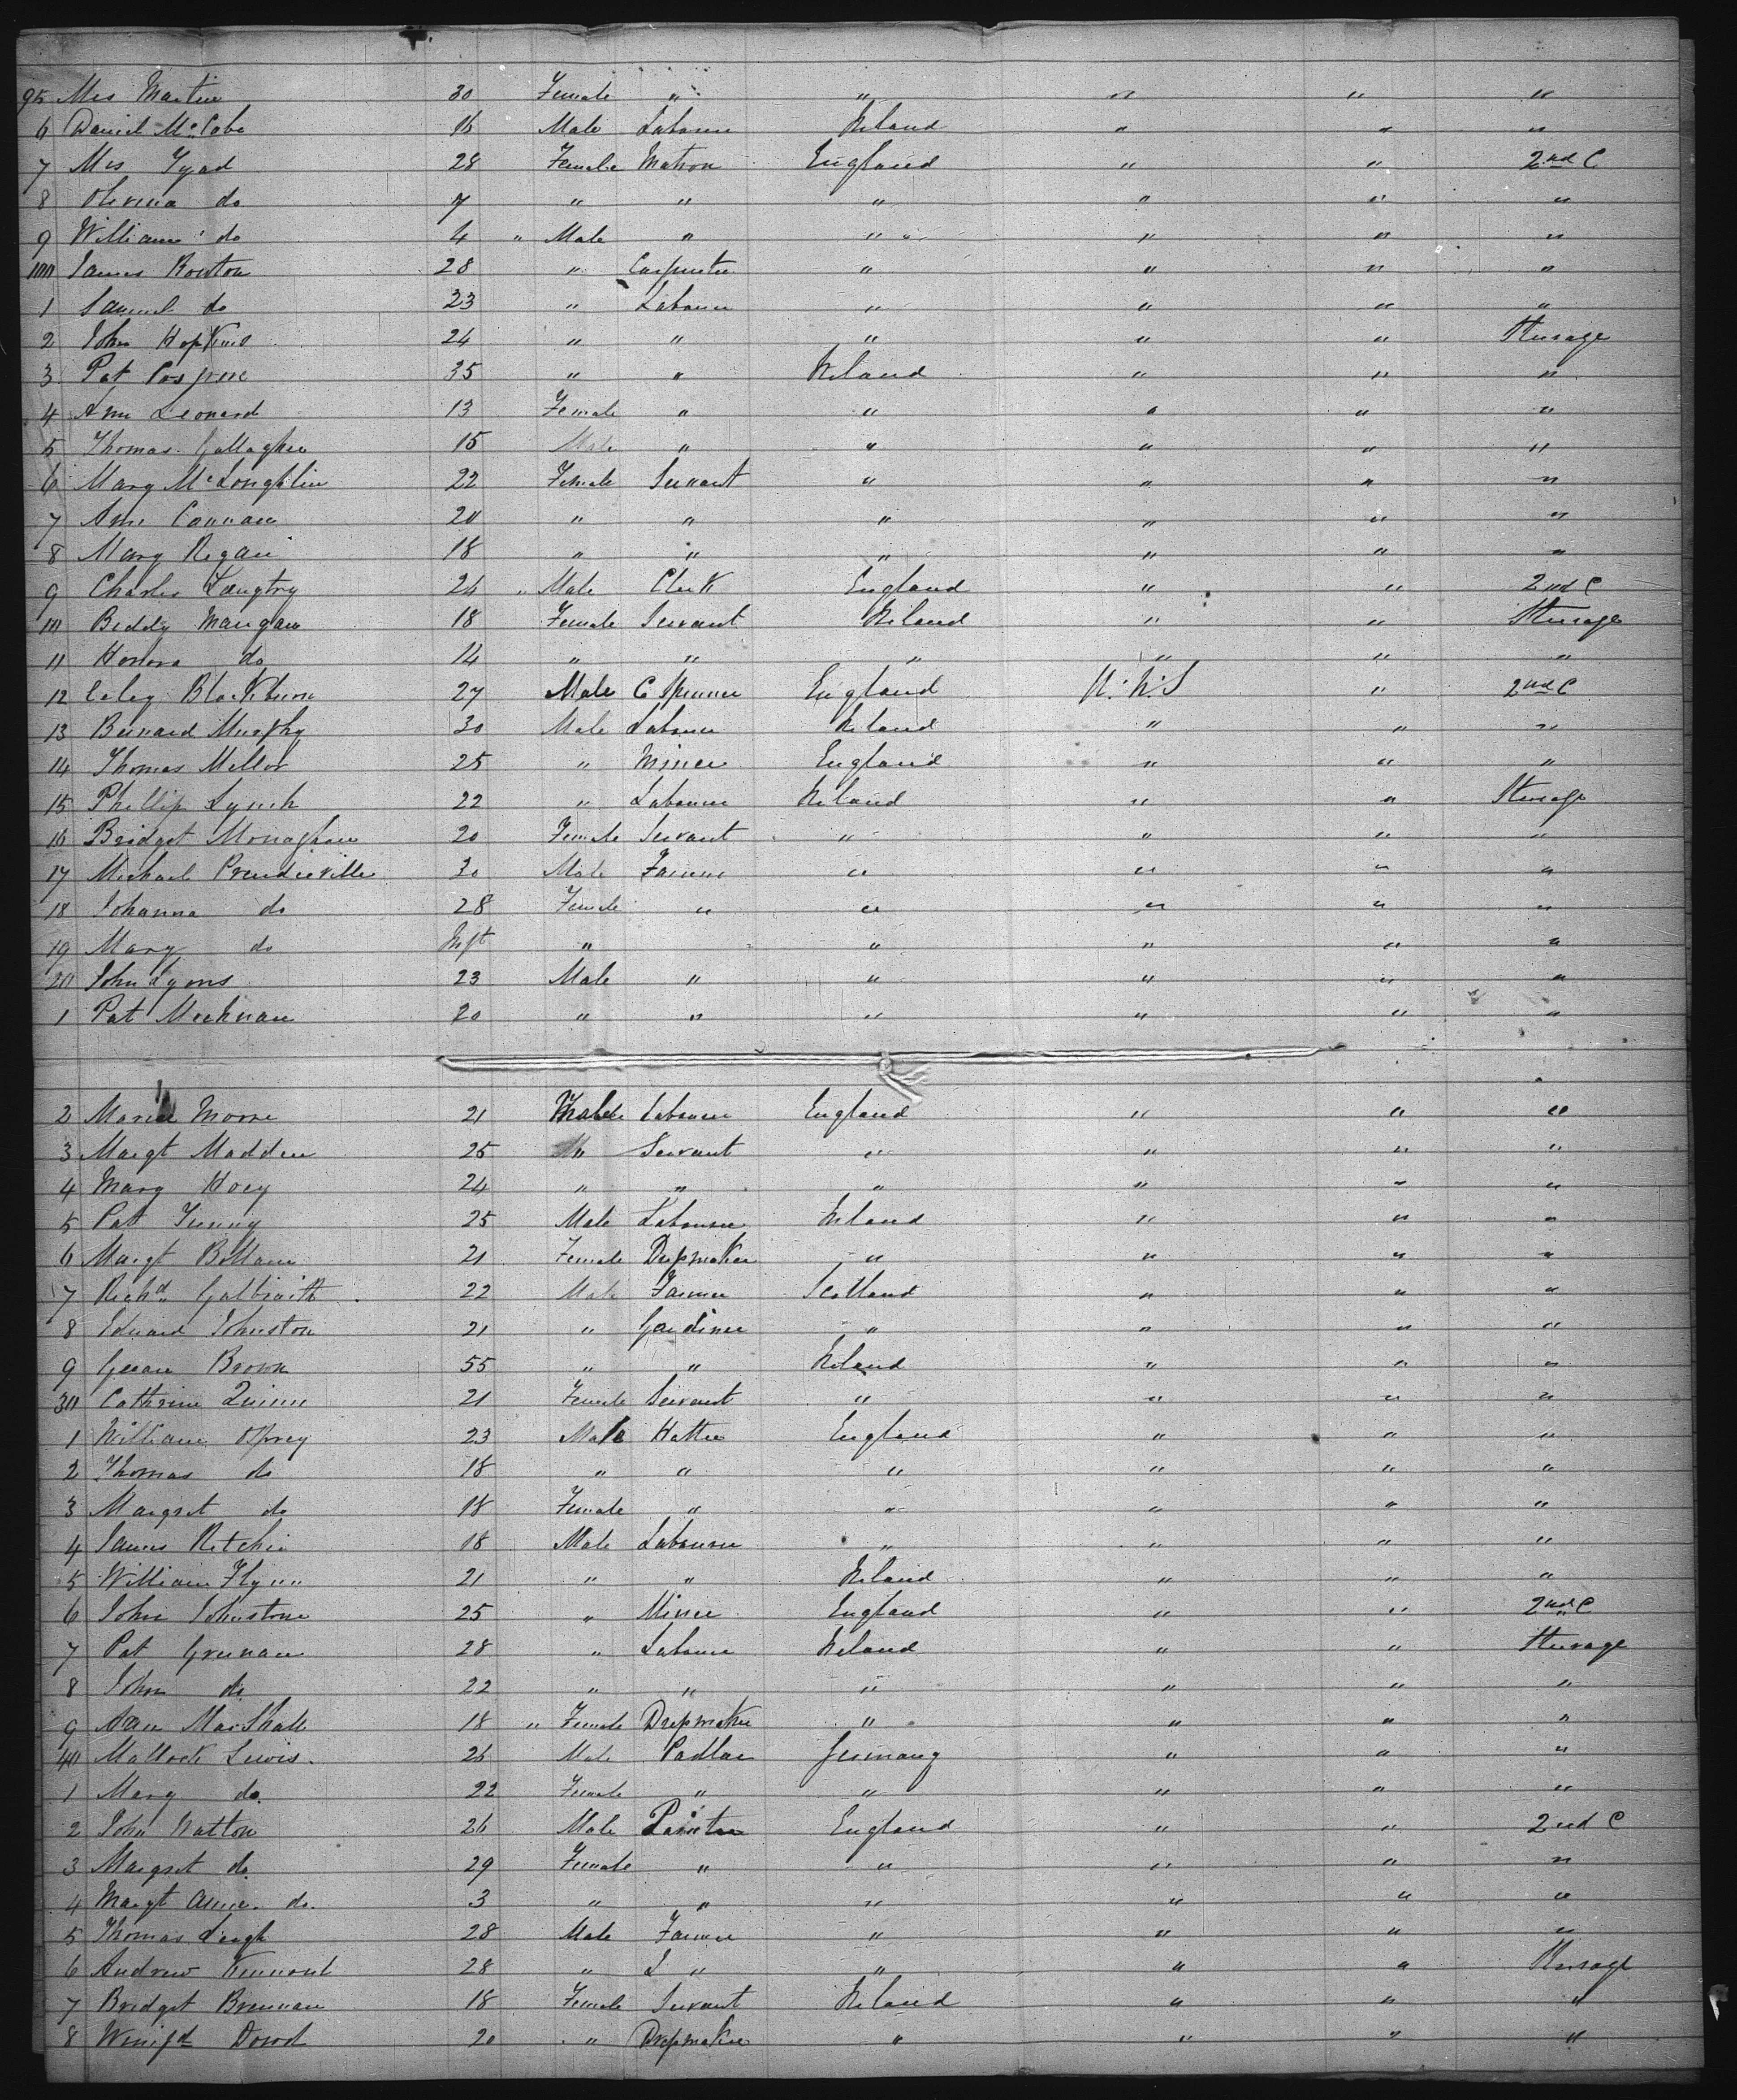 95 Mrs Martin 30 Female " " " " "
6 Daniel McCabe 16 Male Labourer Ireland " " "
7 Mrs Tyad 28 Female Matron England " " 2nd C
8 do 7 " " " " " "
9 William do 4 " Male " " " " "
100 James Rowton 28 " Carpenter " " " "
1 Samuel do 23 " Labourer " " " "
2 John Hopkins 24 " " " " " Sterage
3 Pat Cosgrove 35 " " Ireland " " "
4 Ann Leonard 13 Female " " " " "
5 Thomas Gallagher 15 Male " " " " "
6 Mary McLoughlin 22 Female Servant " " " "
7 Ann Connau 20 " " " " " "
8 Mary Regan 18 " " " " " "
9 Charles Langtry 24 " Male Clerk England " " 2nd C
10 Biddy Mangan 18 Female Servant Ireland " " Sterage
11 Honora do 14 " " " " " "
12 Blackburn 27 Male C Spinner England U. S " 2nd C
13 Bernard Murphy 30 Male Labourer Ireland " " "
14 Thomas Mellor 25 " Miner England " " "
15 Phillip Lynch 22 " Labourer Ireland " " Sterage
16 Bridget Monaghan 20 Female Servant " " " "
17 Michael Prenderville 30 Male Farmer " " " "
18 Johanna do 28 Female " " " " "
19 Mary do Inft " " " " "
20 John Lyons 23 Male " " " " "
1 Pat Meehnan 20 " " " " " "
2 Maria Morre 21 Labourer England " " "
3 Margt Madden 25 " Servant " " " "
4 Mary Hoey 24 " " " " " "
5 Pat Tunny 25 Male Labourer Ireland " " "
6 Margt 21 Female Dressmaker " " " "
7 Richd Galbraith 22 Male Farmer Scotland " " "
8 Edward Johnston 21 " Gardiner " " " "
9 Brown 55 " " Ireland " " "
30 Cathrine Quinn 21 Female Servant " " " "
1 William Osprey 23 Male Hatter England " " "
2 Thomas do 18 " " " " " "
3 Margret do 18 Female " " " " "
4 James Retchie 18 Male Labourer " " " "
5 William Flynn 21 " " Ireland " " "
6 John Johnstone 25 " Miner England " " 2nd C
7 Pat Grenan 28 " Labourer Ireland " " Sterage
8 John do 22 " " " " " "
9 Ann Marshall 18 " Female Dressmaker " " " "
40 Mallock Lewis. 26 Male Padlar Germany " " "
1 Mary do. 22 Female " " " " "
2 John Watton 26 Male Painter England " " 2nd C
3 Margret do. 29 Female " " " " "
4 Margt Anne do. 3 " " " " " "
5 Thomas Leigh 28 Male Farmer " " " "
6 Andrew 28 " L " " " " Sterage
7 Bridget Brennan 18 Female Servant Ireland " " "
8 Winifd Dowd 20 " Dressmaker " " " "